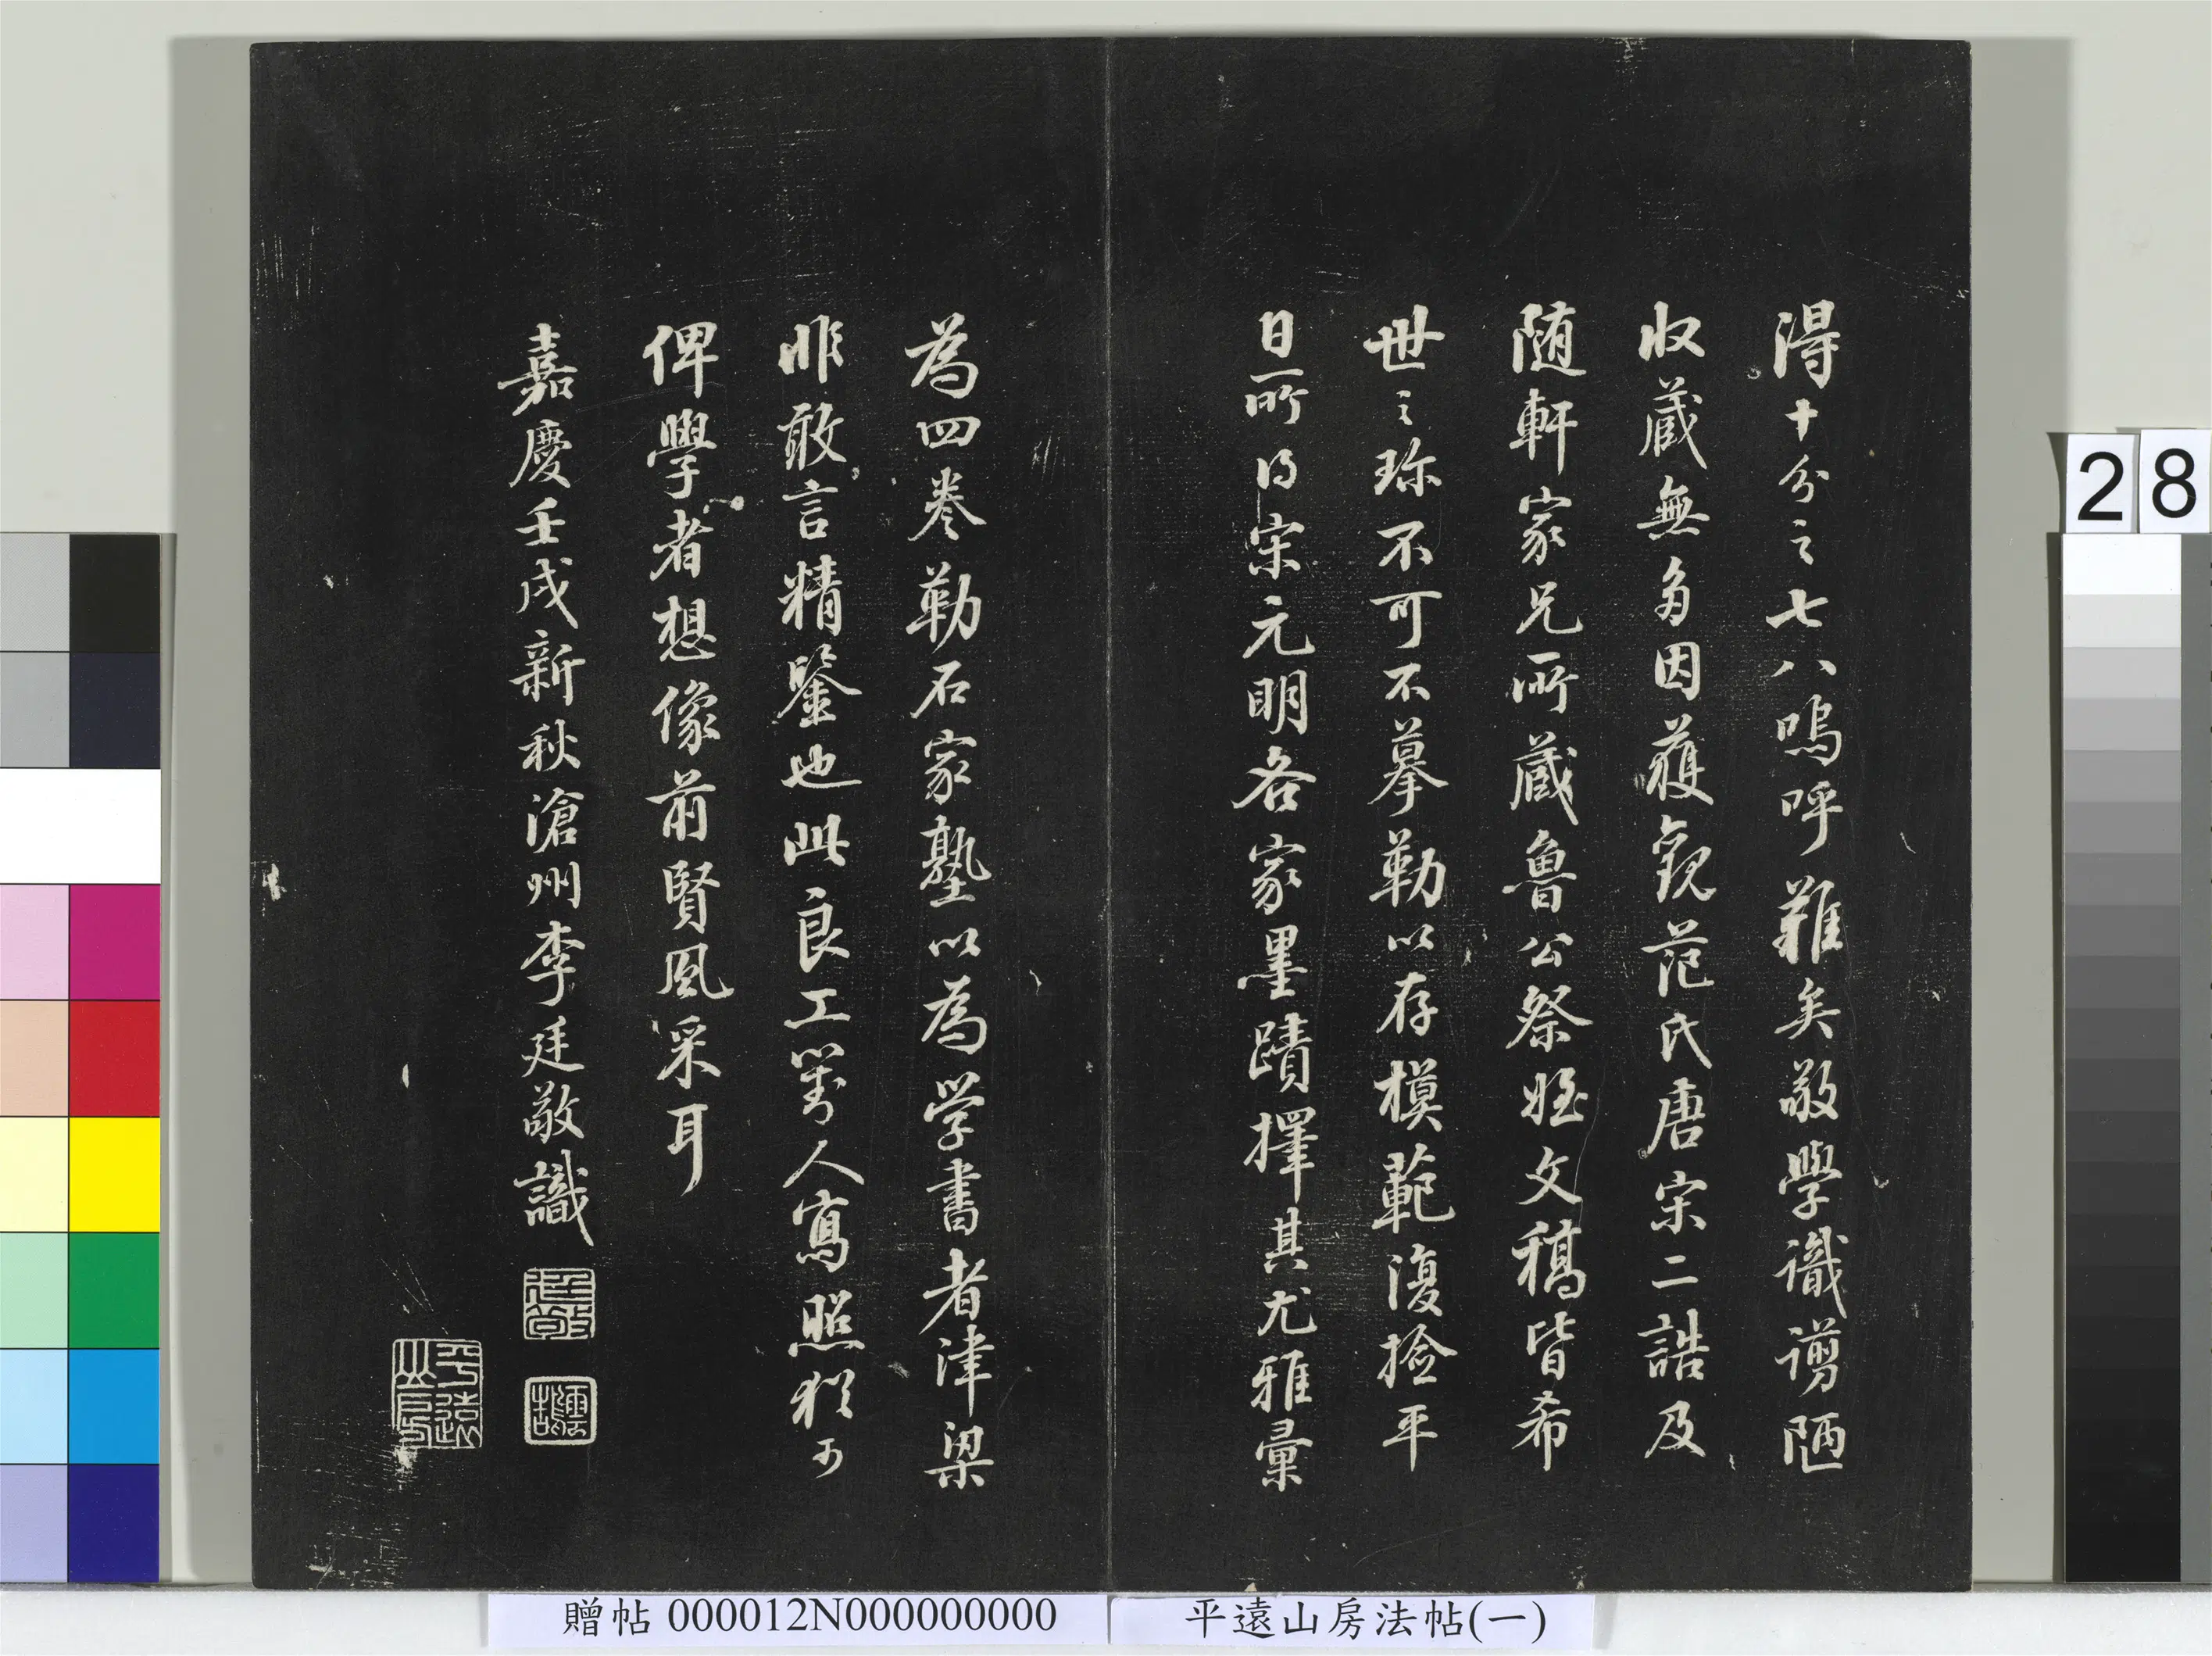 得十分之七八嗚呼難矣敬學識謭陋
收藏無多因獲觀范氏唐宋二誥及
隨軒家兄所藏魯公祭姪文稿皆希
世之珍不可不摹勒以存模範復撿平
日所得宋元明各家墨蹟擇其尤雅彙
為四卷勒石家塾以為学書者津梁
非敢言精鑒也此良工笔人寫照猶可
俾學者想像前賢風采耳
嘉慶壬戌新秋滄州李廷敬識
廷敬
平遠山房
28
贈帖 000012N000000000
平遠山房法帖(一)